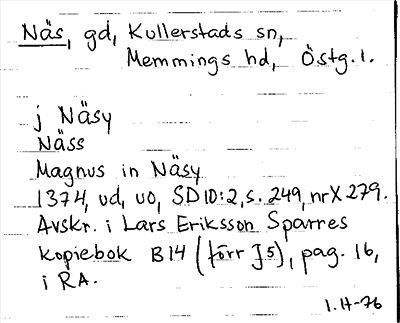 Näs, gd, Kullerstads sn,
Memmings hd, Östg.l.
j Näsy
Näss
Magnus in Näsy
1374, ud, uo, SD 10:2, s. 249, nr X 279.
Avskr. i Lars Eriksson Sparres
kopiebok B14 (förr J5), pag. 16,
i RA.
1.H-76